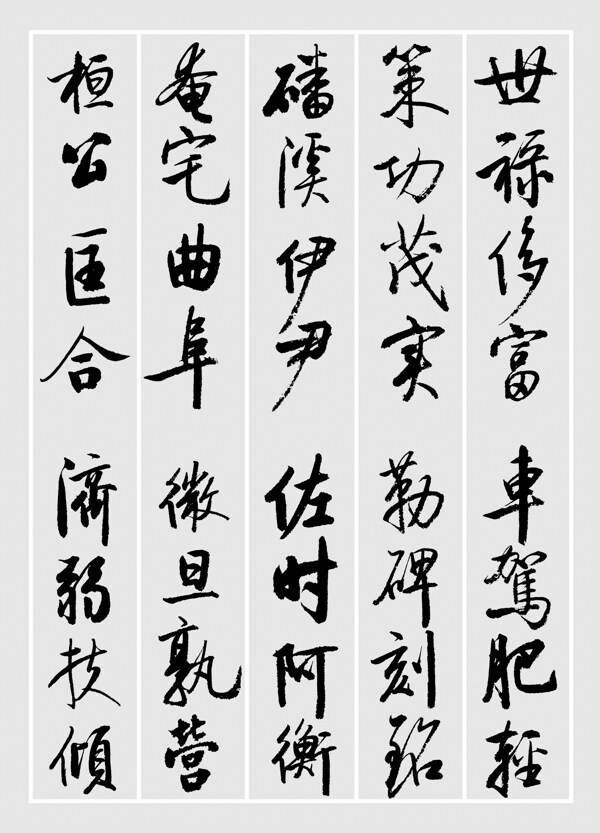 世禄侈富車駕肥輕
策功茂实勒碑刻銘
磻溪伊尹佐时阿衡
奄宅曲阜微旦孰营
桓公匡合濟弱扶傾